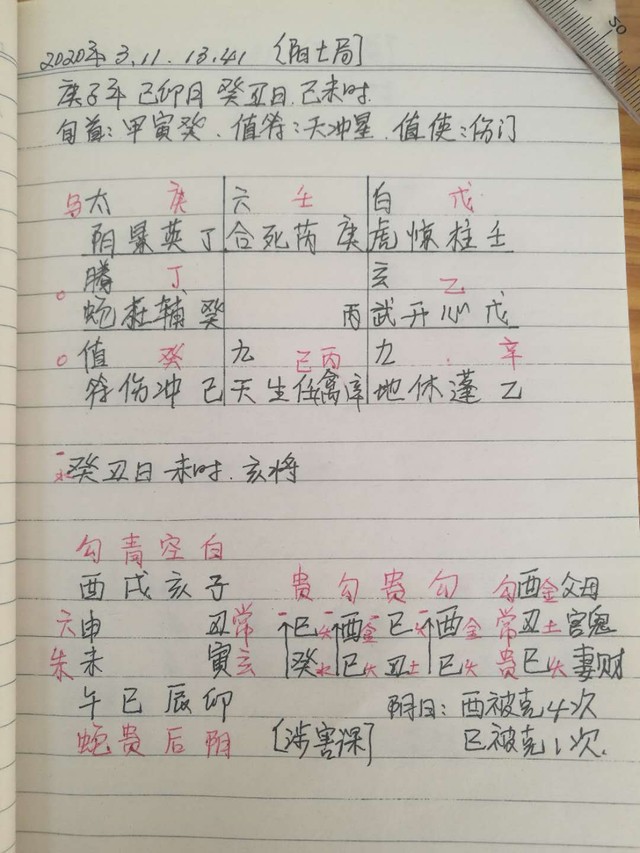 2020年3.11.13.41 [阳七局]
庚子年 己卯月 癸丑日.己未时.
旬首:甲寅癸.值符:天冲星.值使:伤门
马太 庚 六 壬 白 戊
阴景英丁 合死芮庚 虎惊柱壬
o 腾 丁 玄 乙
蛇杜辅癸 丙 武开心戊
o 值 癸 九 己丙 九 辛
符伤冲己 天生任禽辛 地休蓬乙
癸丑日 未时.亥将
勾青空白
酉戌亥子 贵勾贵勾 勾酉金父母
六申 丑常 巳火酉金巳火酉金 常丑土官鬼
朱未 寅玄 癸水巳火丑土巳火 贵巳火妻财
午巳辰卯 阴日:酉被克4次
蛇贵后阴 [涉害课] 巳被克1次.
50